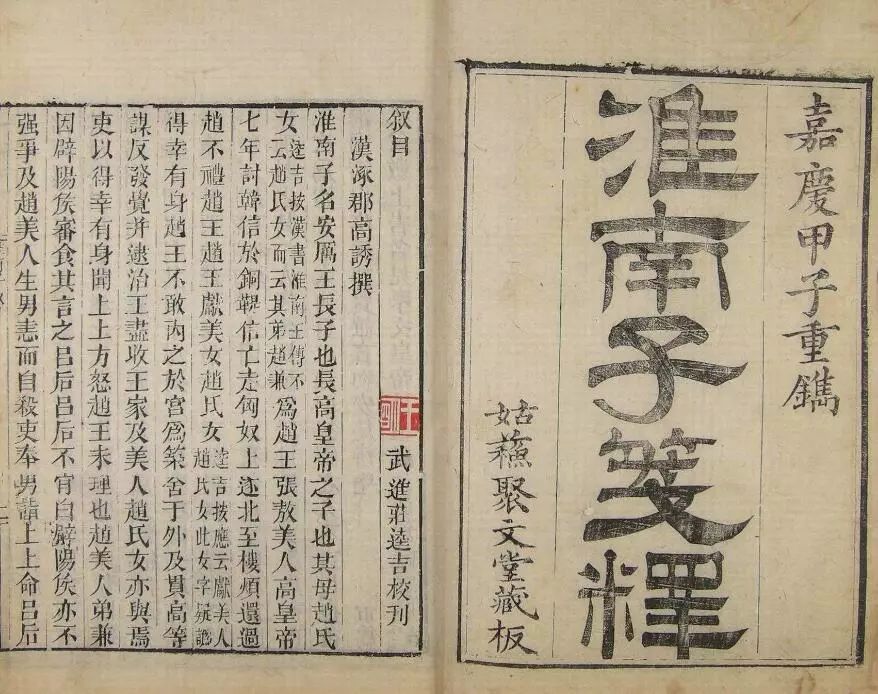 嘉慶甲子重鐫
淮南子箋釋
姑蘓聚文堂藏板
叙目
武進莊逵吉校刊
漢涿郡高誘撰
淮南子名安厲王長子也長高皇帝之子也其母趙氏
女逵吉按漢書淮南王傳不云趙氏女而云其弟趙兼爲趙王張敖美人高皇帝
七年討韓信於銅鞮信亡走匈奴上遂北至樓煩還過
趙不禮趙王趙王獻美女趙氏女逵吉按應云獻美人趙氏女此女字疑譌
得幸有身趙王不敢内之於宫爲築舍于外及貫高等
謀反發覺并逮治王盡收王家及美人趙氏女亦與焉
吏以得幸有身聞上上方怒趙王未理也趙美人弟兼
因辟陽矦審食其言之吕后吕后不肎白辟陽矦亦不
强爭及趙美人生男恚而自殺吏奉男詣上上命吕后